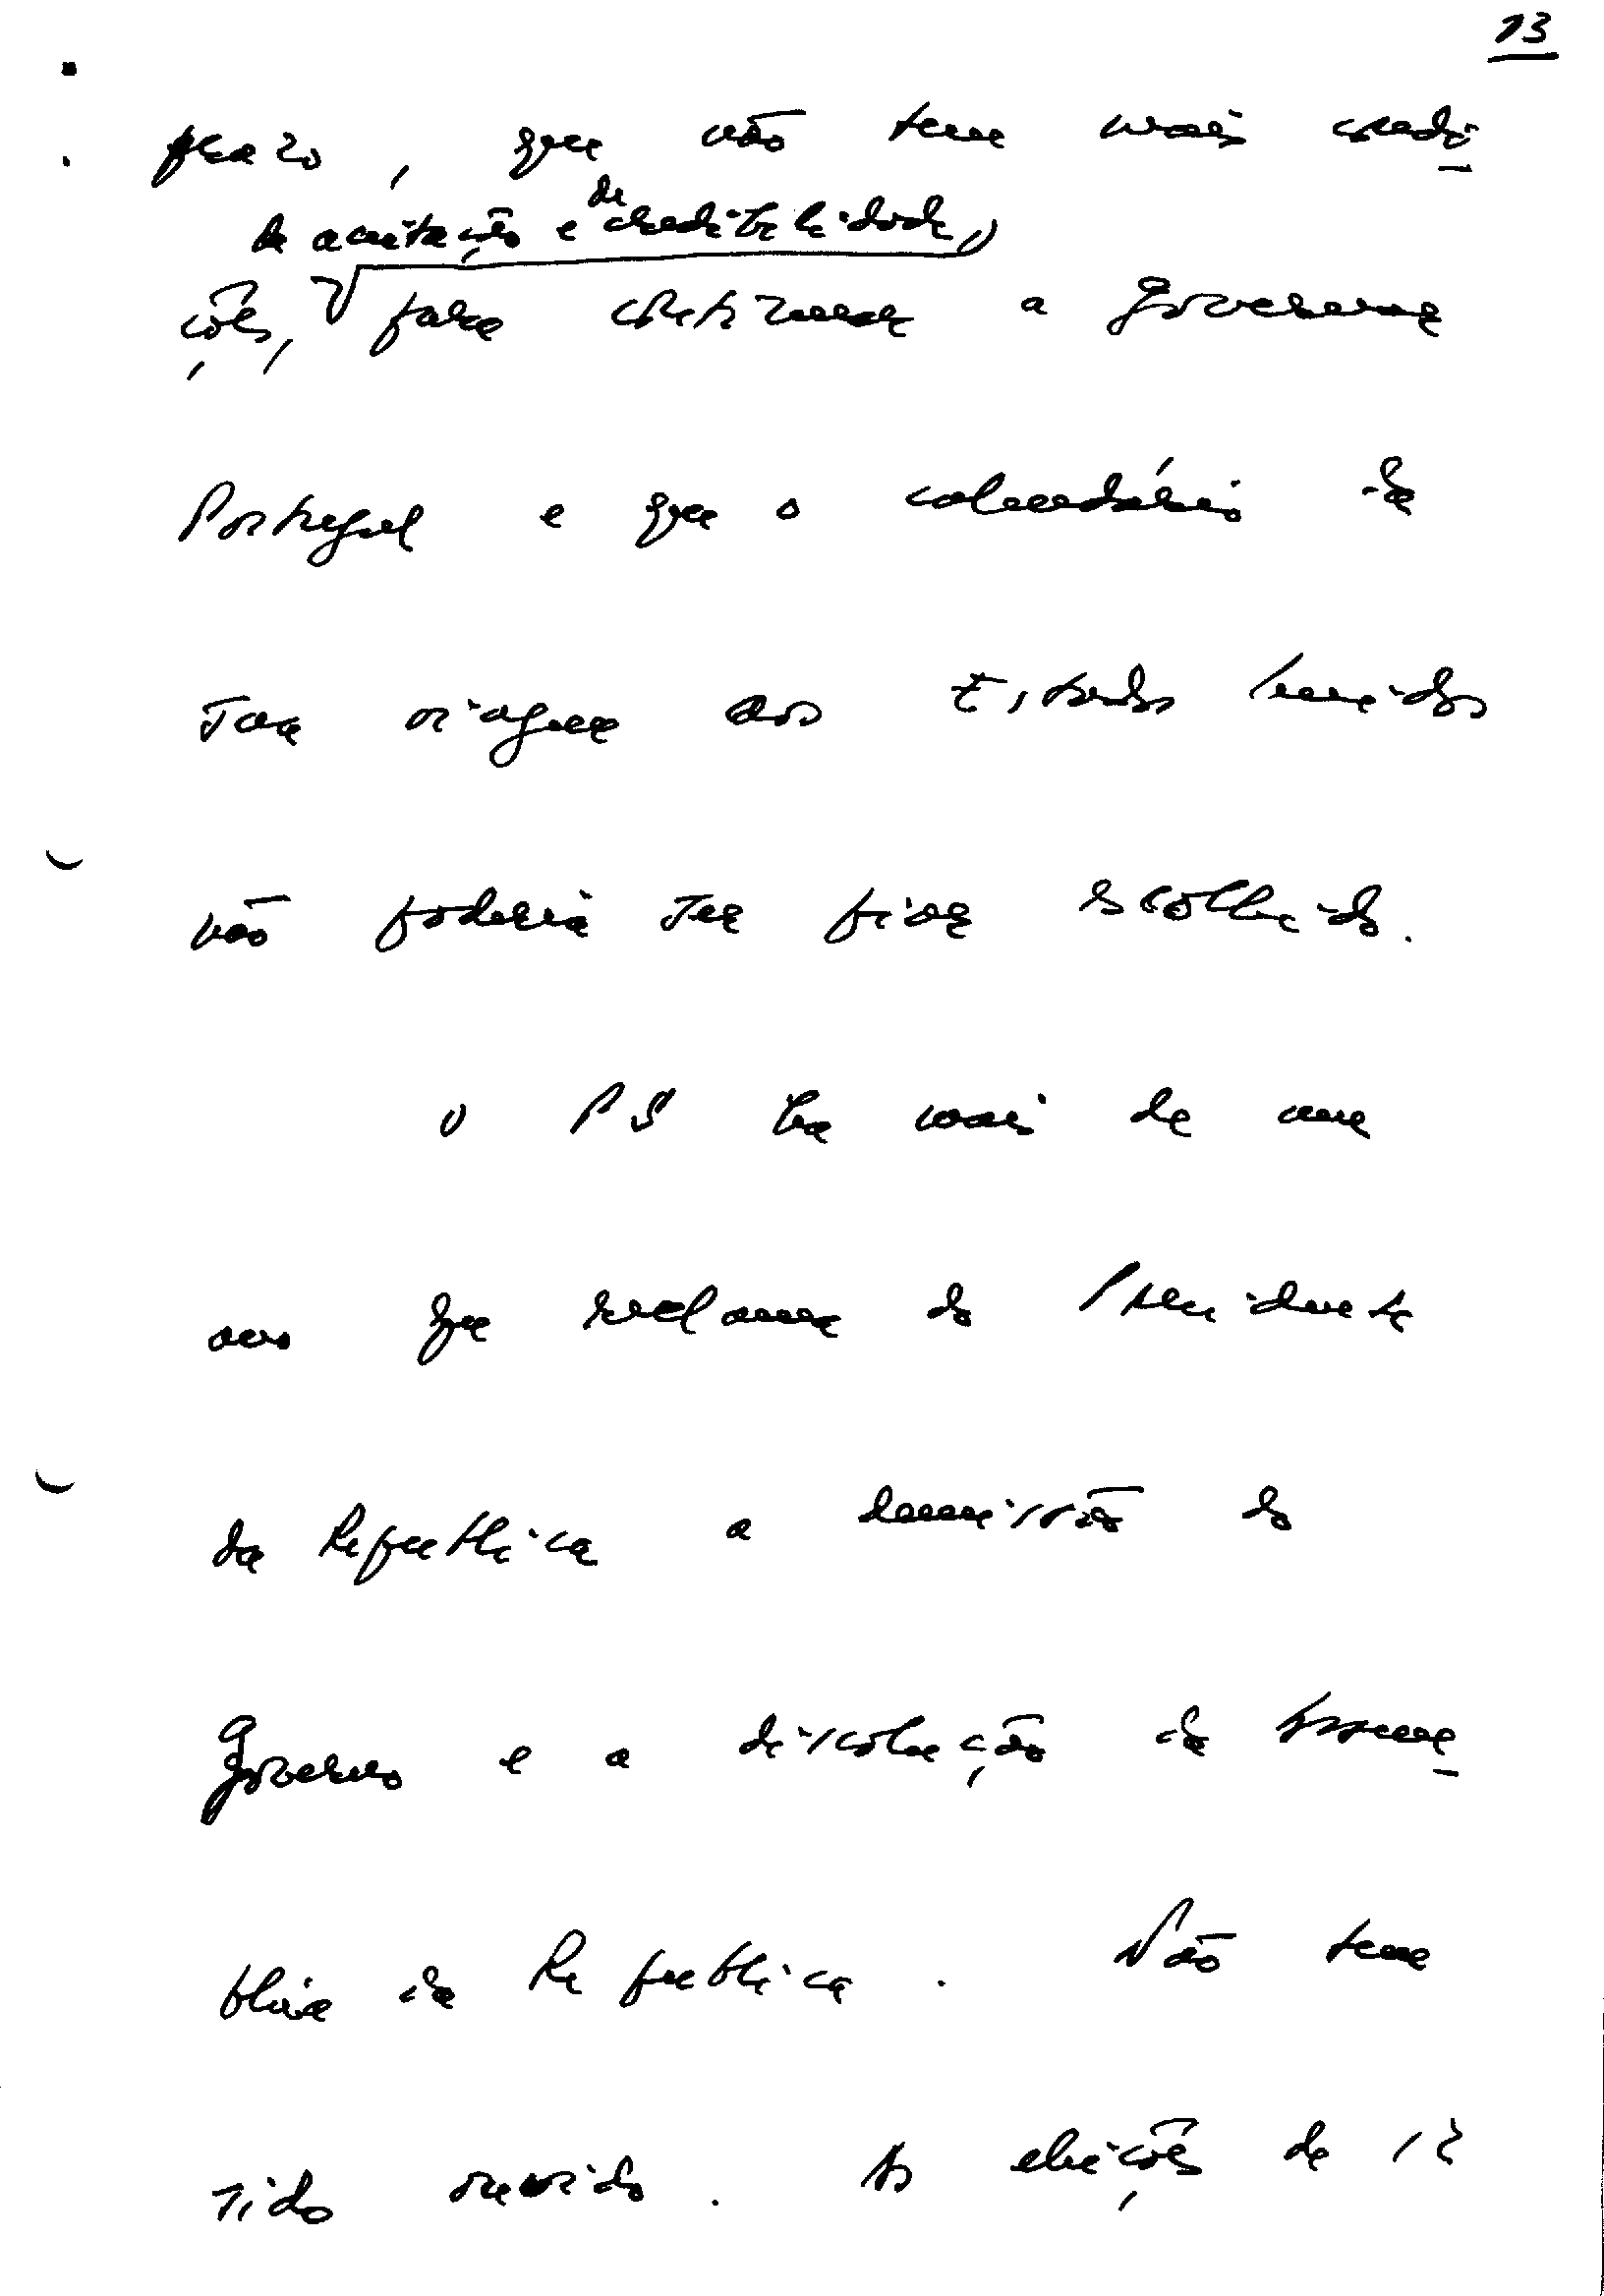 13
prazo, que não tem mais condi-
de aceitação e de credibilidade,
ções, para continuar a governar
Portugal e que o calendário da
sua viagem aos Estados Unidos
não poderia ser pior escolhido.
O PS há mais de um
ano que reclama do Presidente
da República a demissão do
Governo e a dissolução da Assem-
bleia da República. Não tem
sido ouvido. As eleições de 12